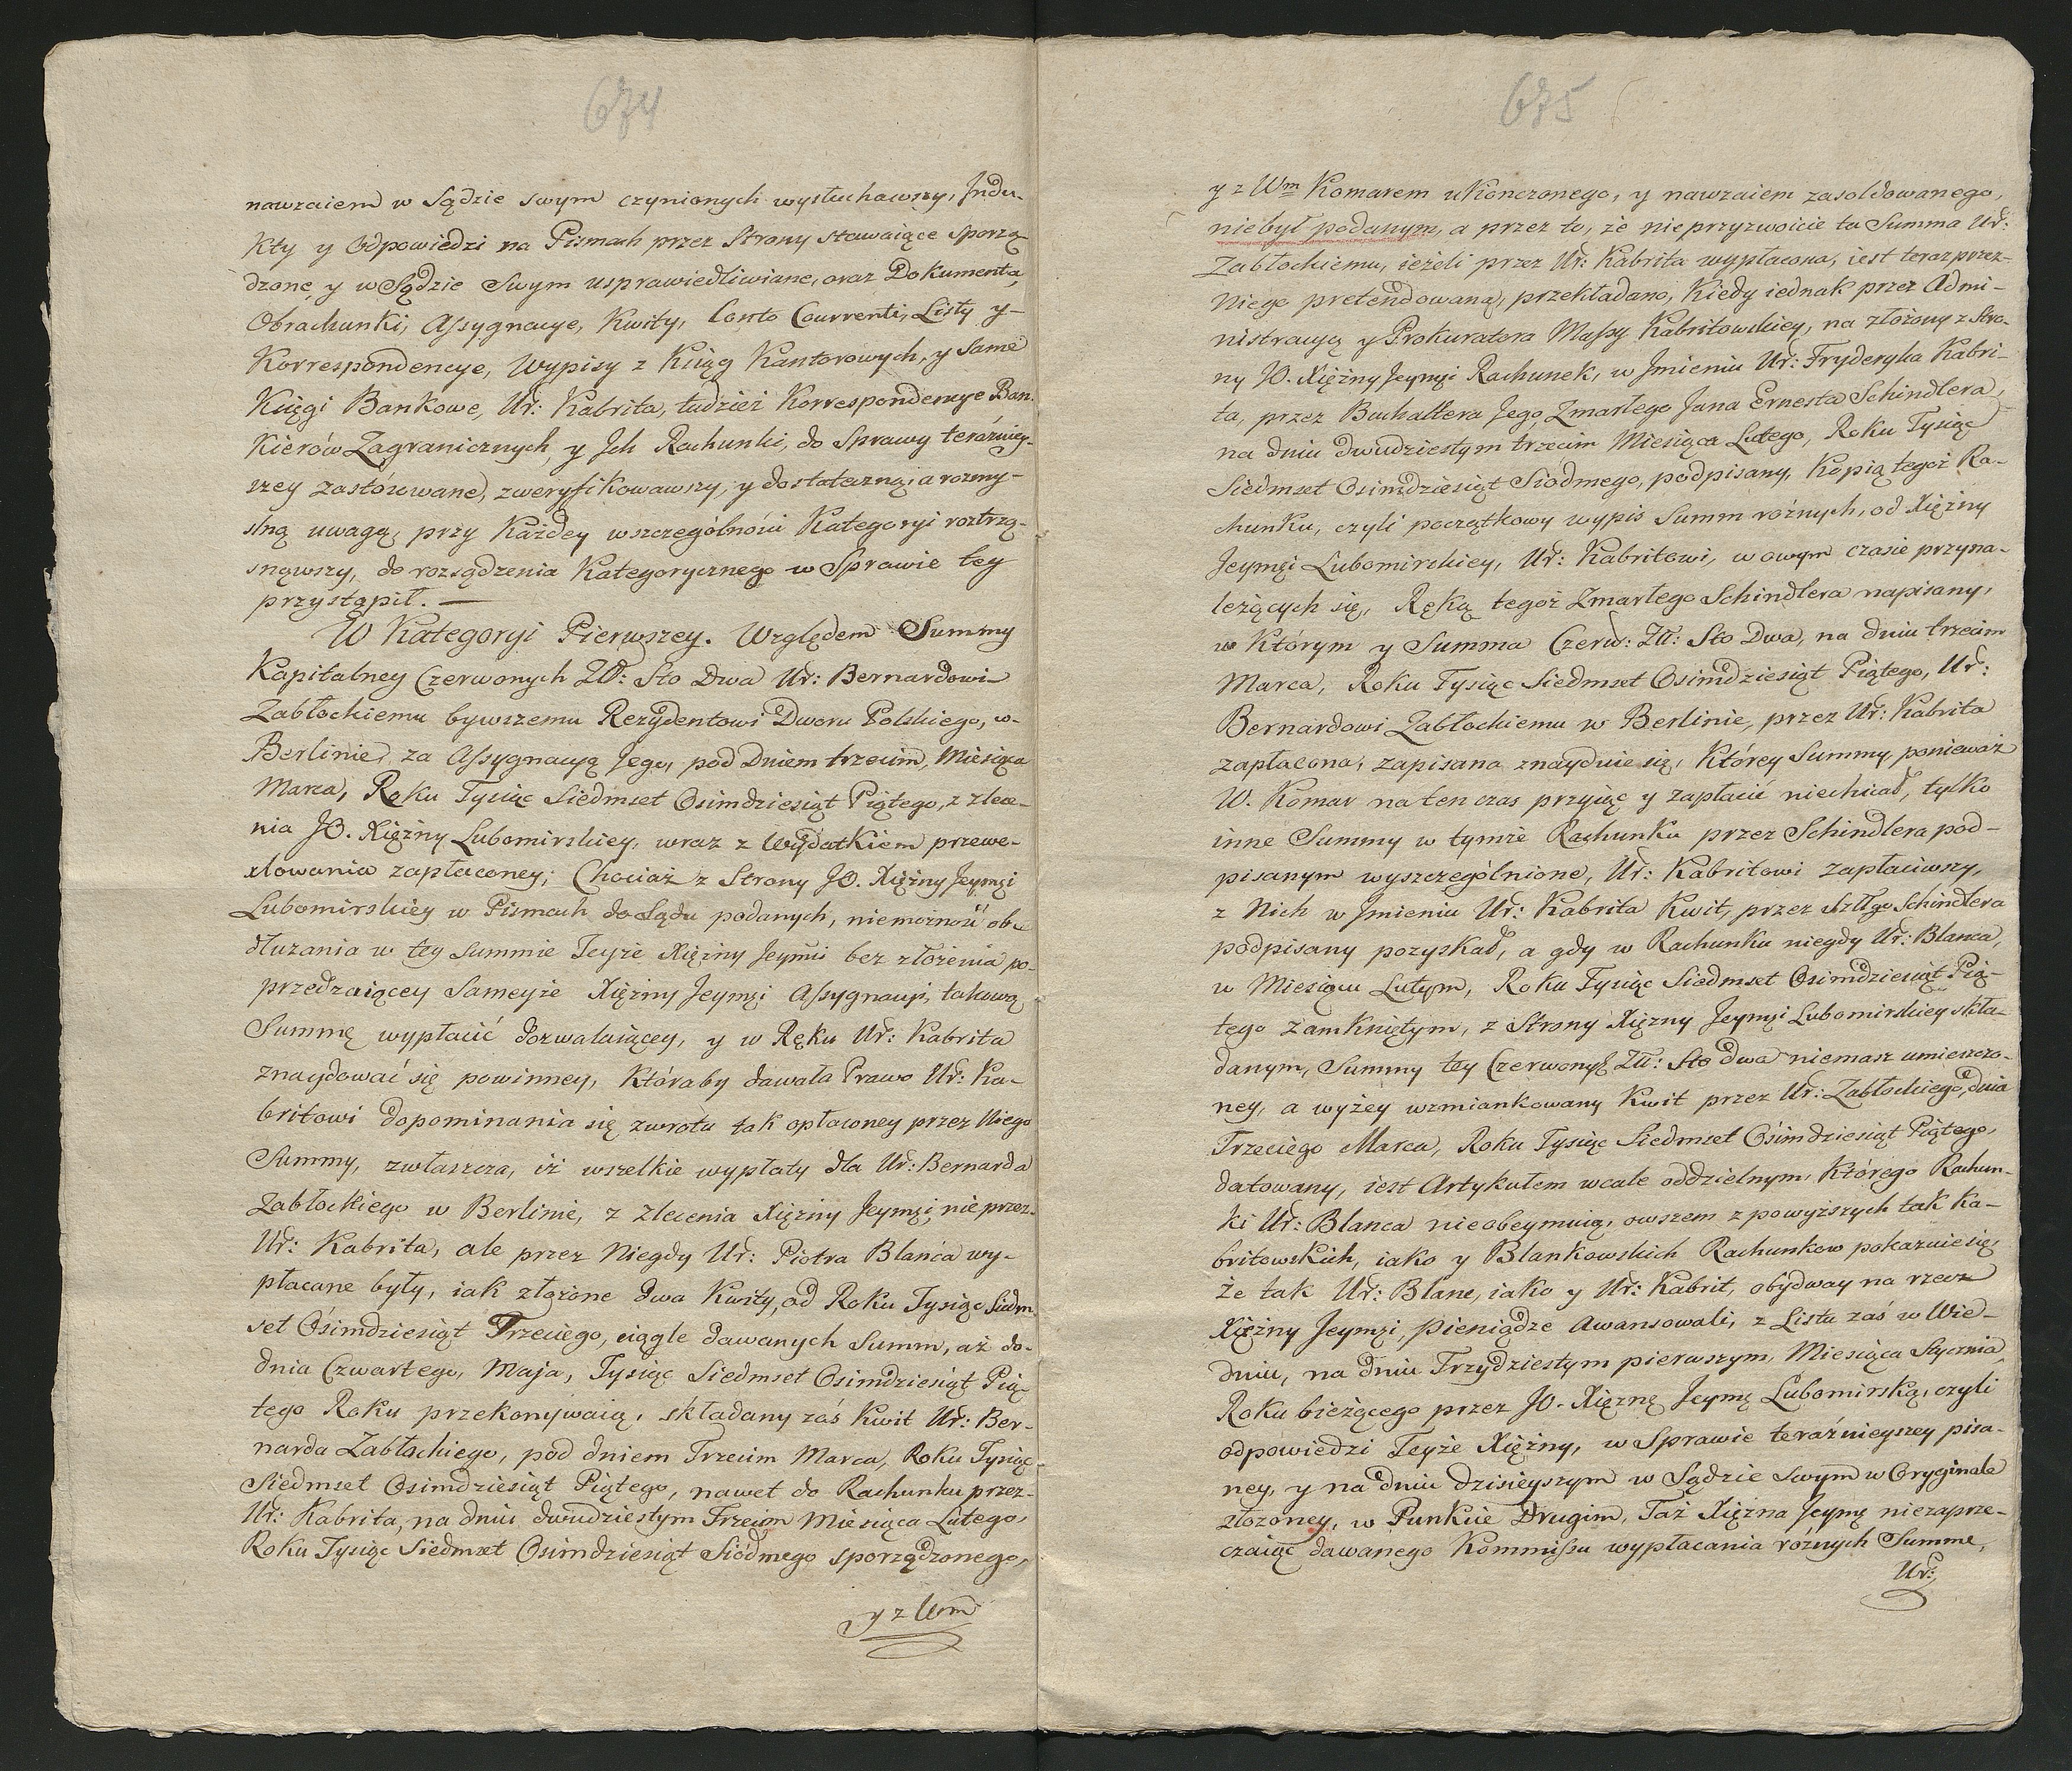 674
nawzaiem w Sądzie swym czynionych wysłuchawszy, Indu-
kty y Odpowiedzi na Pismach przez Strony stawaiące sporzą
dzone, y w Sądzie Swym usprawiedliwiane, oraz Dokumenta,
Obrachunki, Assygnacye, Kwity, Conto Courrenti, Listy y-
Korrespondencye, Wypisy z Ksiąg Kantorowych, y Same
Księgi Bankowe, Ur: Kabrita, tudzież Korrespondencye Ban-
kierów Zagranicznych, y Ich Rachunki, do Sprawy teraźniey-
szey zastósowane, zweryfikowawszy, y dostateczną, a rozmy-
slną uwagą, przy Każdey wszczególności Kategoryi roztrzą-
snąwszy, do rozsądzenia Kategorycznego w Sprawie tey
przystąpił. —
W Kategoryi Pierwszey. Względem Summy
Kapitalney Czerwonych Złł: Sto Dwa Ur: Bernardowi
Zabłockiemu bywszemu Rezydentowi Dworu Polskiego, w-
Berlinie, za Assygnacyą Jego, pod Dniem trzecim, Miesiąca
Marca, Roku Tysiąc Siedmset Osimdziesiąt Piątego, z zlece-
nia JO. Xiężny Lubomirskiey, wraz z Wydatkiem przewe-
xlowania zapłaconey; Chociaż z Strony JO. Xiężny Jeymći
Lubomirskiey w Pismach do Sądu podanych, niemożność obw
dłużania w tey Summie Teyże Xiężny Jeymći bez złożenia po-
przedzaiącey Sameyże Xiężny Jeymći Assygnacyi, takową
Summę wypłacić dozwalaiącey, y w Ręku Ur: Kabrita
znaydować się powinney, Któraby dawała Prawo Ur: Ka-
britowi dopominania się zwrotu tak opłaconey przez Niego
Summy, zwłaszcza, iż wszelkie wypłaty dla Ur: Bernarda
Zabłockiego w Berlinie, z Zlecenia Xiężny Jeymći, nie przez-
Ur: Kabrita, ale przez Niegdy Ur: Piotra Blanca wy-
płacane były, iak złożone dwa Kwity, od Roku Tysiąc Siedm
set Osimdziesiąt Trzeciego, ciągle dawanych Summ, aż do-
dnia Czwartego, Maja, Tysiąc Siedmset Osimdziesiąt Pią
tego Roku przekonywaią, składany zaś Kwit Ur: Ber-
narda Zabłockiego, pod dniem Trzecim Marca, Roku Tysiąc
Siedmset Osimdziesiąt Piątego, nawet do Rachunku przez-
Ur: Kabrita, na dniu dwudziestym Trzecim Miesiąca Lutego,
Roku Tysiąc Siedmset Osimdziesiąt Siódmego sporządzonego,
y z Wm
675
y z Wm Komarem ukończonego, y nawzaiem zasoldowanego,
niebył podanym, a przez to, że nieprzyzwoicie ta Summa Ur:
Zabłockiemu, ieżeli przez Ur: Kabrita wypłacona, iest teraz przez-
Niego pretendowaną, przekładano, Kiedy iednak przez Admi-
nistracyą y Prokuratora Massy Kabritowskiey, na złożony z Stro-
ny JO. Xiężny Jeymći Rachunek, w Jmieniu Ur: Fryderyka Kabri-
ta, przez Buchaltera Jego, Zmarłego Jana Ernesta Schindlera,
na dniu dwudziestym trzecim Miesiąca Lutego, Roku Tysiąc
Siedmset Osimdziesiąt Siodmego, podpisany, Kopią tegoż Ra-
chunku, czyli początkowy wypis Summ różnych, od Xiężny
Jeymći Lubomirskiey, Ur: Kabritowi, w owym czasie przyna-
leżących się, Ręką tegoż Zmarłego Schindlera napisany,
w Którym y Summa Czerw: Złł: Sto Dwa, na dniu trzecim
Marca, Roku Tysiąc Siedmset Osimdziesiąt Piątego, Ur:
Bernardowi Zabłockiemu w Berlinie, przez Ur: Kabrita
zapłacona, zapisana znayduie się, Którey Summy, ponieważ
W. Komar na ten czas przyiąć y zapłacić niechciał, tylko
inne Summy w tymże Rachunku przez Schindlera pod-
pisanym wyszczególnione, Ur: Kabritowi zapłaciwszy,
z Nich w Jmieniu Ur: Kabrita Kwit, przez Schindlera
podpisany pozyskał, a gdy w Rachunku niegdy Ur: Blanca,
w Miesiącu Lutym, Roku Tysiąc Siedmset Osimdziesiąt Pią-
tego zamkniętym, z Strony Xiężny Jeymći Lubomirskiey skła-
danym, Summy tey Czerwonych Złł: Sto dwa niemasz umieszczo-
ney, a wyżey wzmiankowany Kwit przez Ur: Zabłockiego, dnia
Trzeciego Marca, Roku Tysiąc Siedmset Osimdziesiąt Piątego,
datowany, iest Artykułem wcale oddzielnym, Którego Rachun-
ki Ur: Blanca nieobeymuią, owszem z powyższych tak Ka-
britowskich, iako y Blankowskich Rachunkow pokazuie się,
że tak Ur: Blanc, iako y Ur: Kabrit, obydway na rzecz
Xiężny Jeymći, pieniądze awansowali, z Listu zaś w Wie-
dniu, na dniu Trzydziestym pierwszym, Miesiąca Stycznia,
Roku bieżącego przez JO. Xiężnę Jeymć Lubomirską, czyli
odpowiedzi Teyże Xiężny, w Sprawie teraźnieyszey pisa-
ney, y na dniu dzisieyszym w Sądzie swym w Oryginale
złożoney, w Punkcie Drugim, Taż Xiężna Jeymć niezaprze-
czaiąc dawanego Kommissu wypłacania różnych Summ,
Ur: